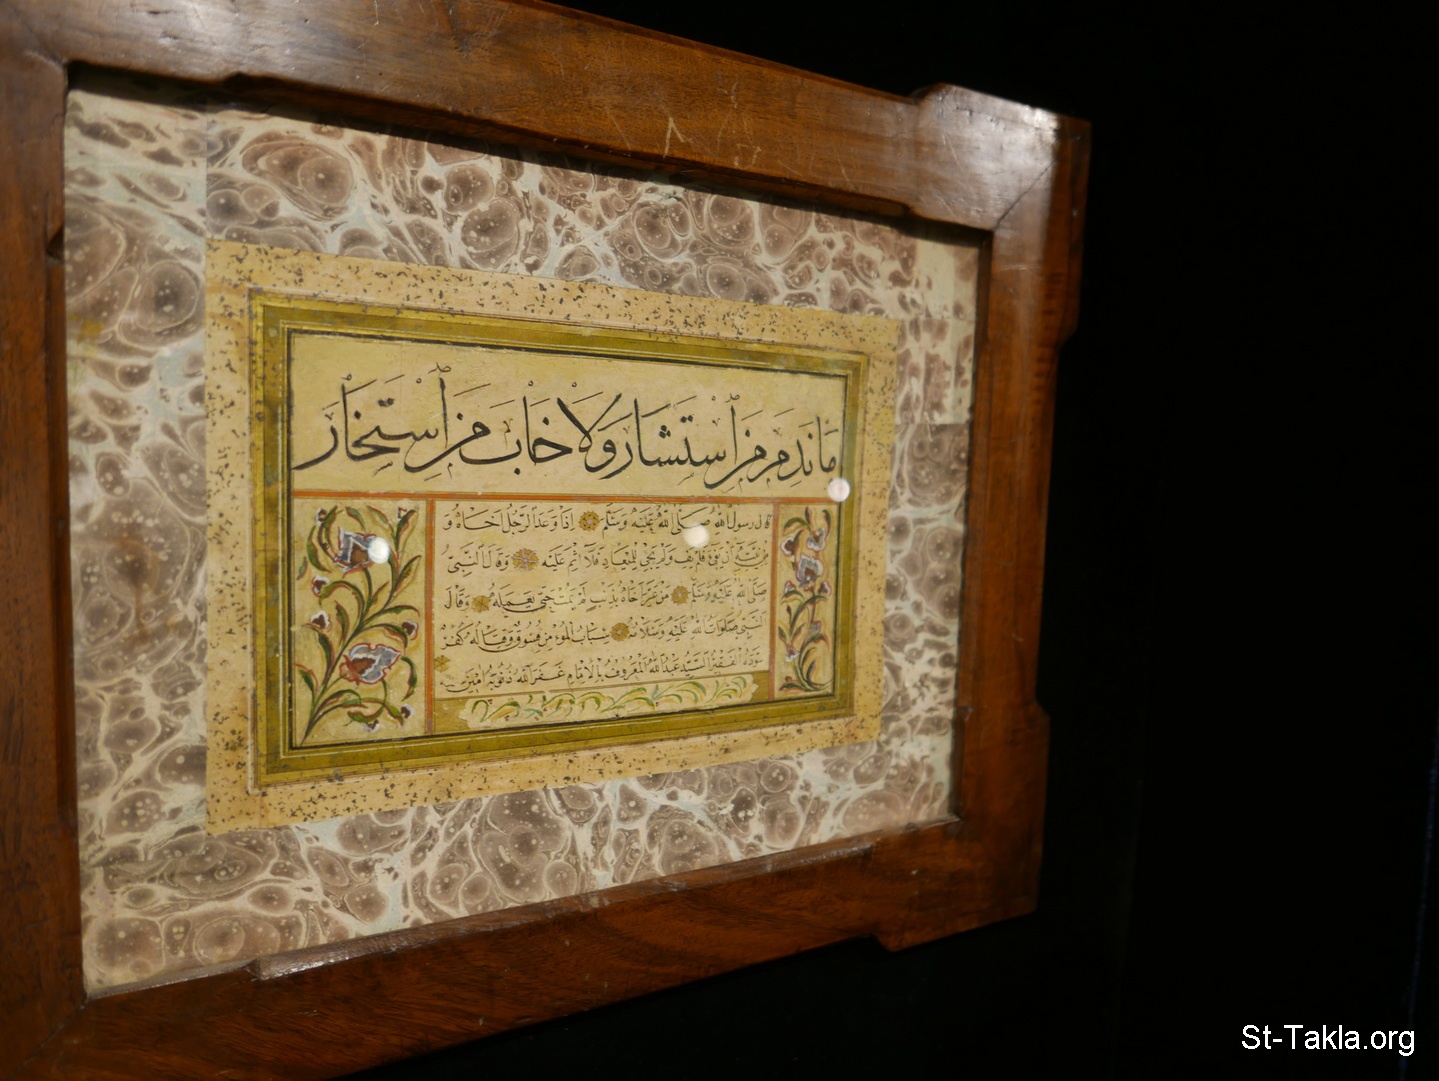 مَا نَدِمَ مَنِ اسْتَشَارَ وَلَا خَابَ مَنِ اسْتَخَارَ
قال رسول الله صلى الله عليه وسلم إذا وعد الرجل أخاه و
من نيته أن يفي فلم يف ولم يجئ للميعاد فلا إثم عليه وقال النبي
صلى الله عليه وسلم من عير أخاه بذنب لم يمت حتى يعمله وقال
النبي صلوات الله عليه وسلامه سباب المؤمن فسوق وقتاله كفر
سوده الفقير السيد عبد الله المعروف بالإمام غفر الله ذنوبه آمين
St-Takla.org